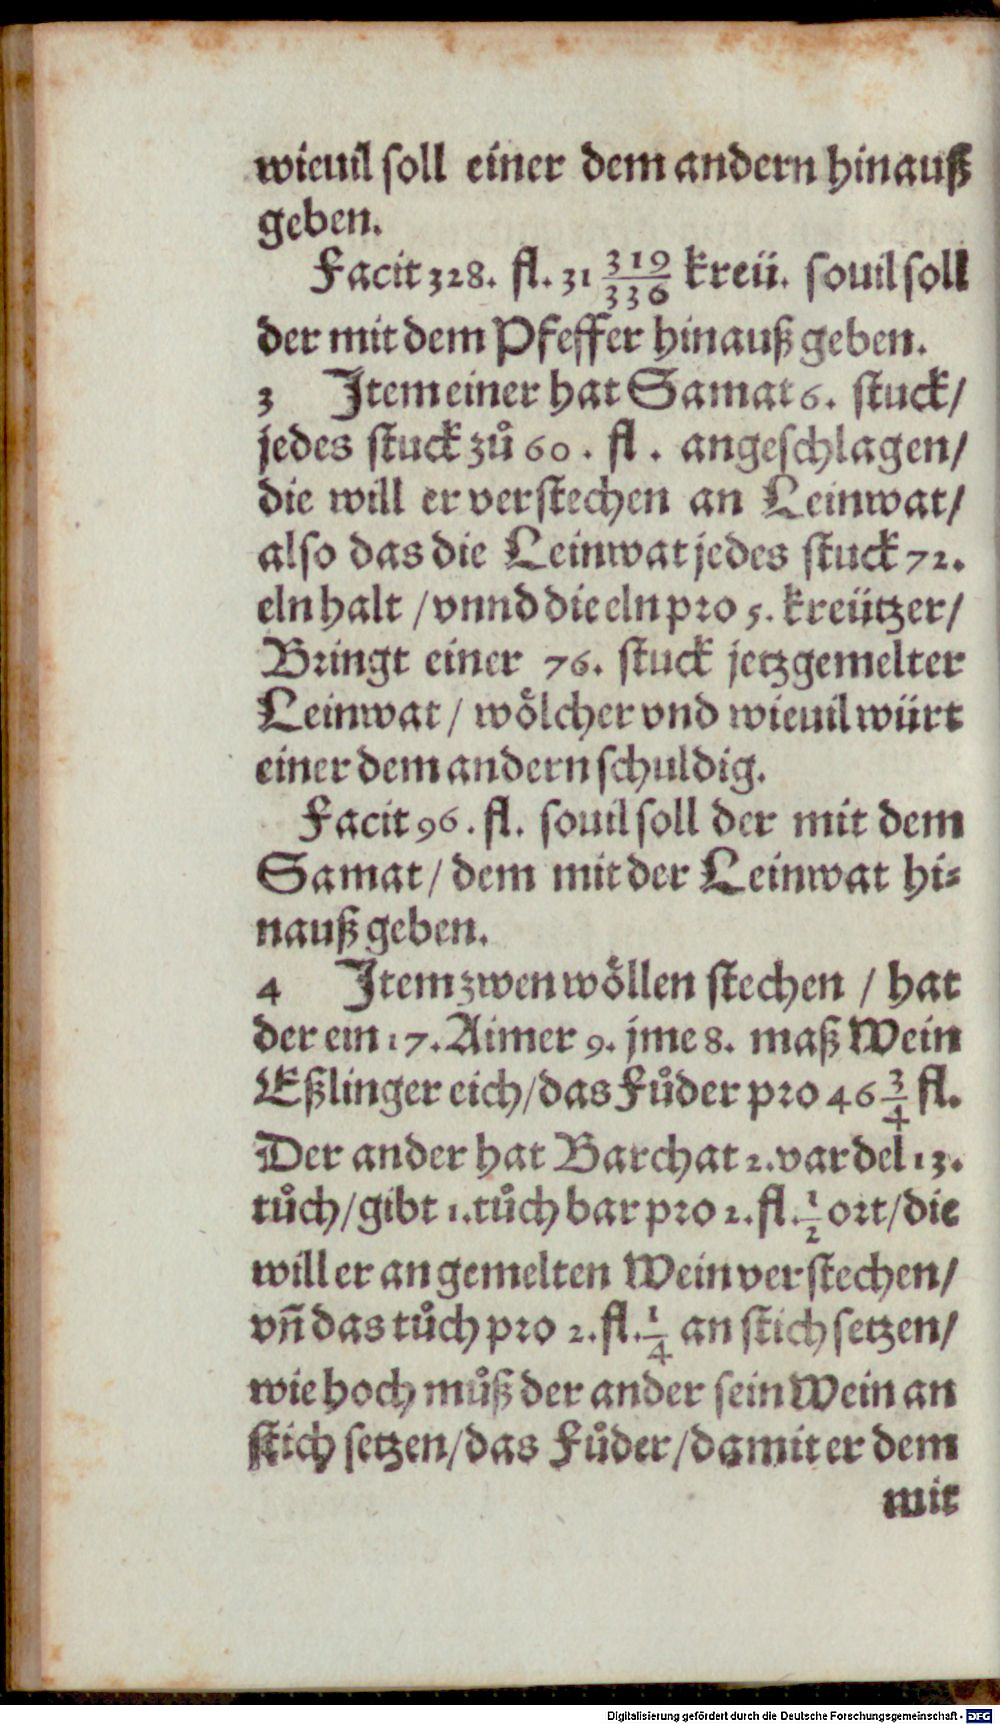 wieuil soll einer dem andern hinauß
geben.
Facit 328. fl. 31 319/336 kreü. souil soll
der mit dem Pfeffer hinauß geben.
3 Item einer hat Samat 6. stuck/
jedes stuck zů 60. fl. angeschlagen/
die will er verstechen an Leinwat/
also das die Leinwat jedes stuck 72.
eln halt / vnnd die eln pro 5. kreützer/
Bringt einer 76. stuck jetzgemelter
Leinwat / wölcher vnd wieuil würt
einer dem andern schuldig.
Facit 96. fl. souil soll der mit dem
Samat / dem mit der Leinwat hi⸗
nauß geben.
4 Item zwen wöllen stechen / hat
der ein 17. Aimer 9. jme 8. maß Wein
Eßlinger eich/das Fůder pro 46 3/4 fl.
Der ander hat Barchat 2. vardel 13.
tůch/gibt 1. tůch bar pro 2. fl. 1/2 ort/die
will er an gemelten Wein verstechen/
vñ das tůch pro 2. fl. 1/4 an stich setzen/
wie hoch můß der ander sein Wein an
stich setzen/das Fůder/damit er dem
mit
Digitalisierung gefördert durch die Deutsche Forschungsgemeinschaft - DFG